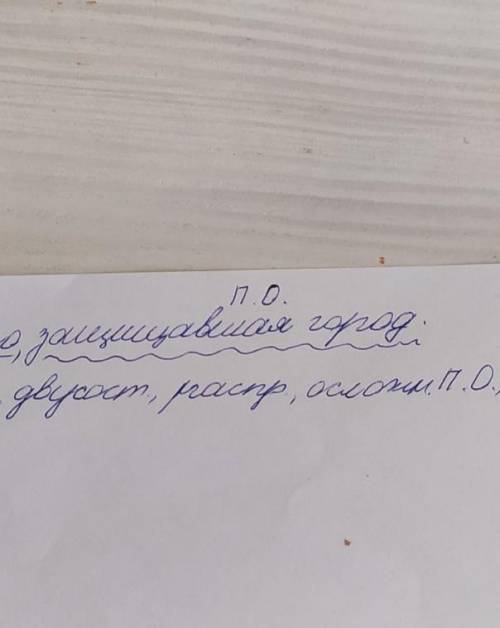 П.О.
о, защищавшая город.
, двусост., распр., осложн. П.О.,